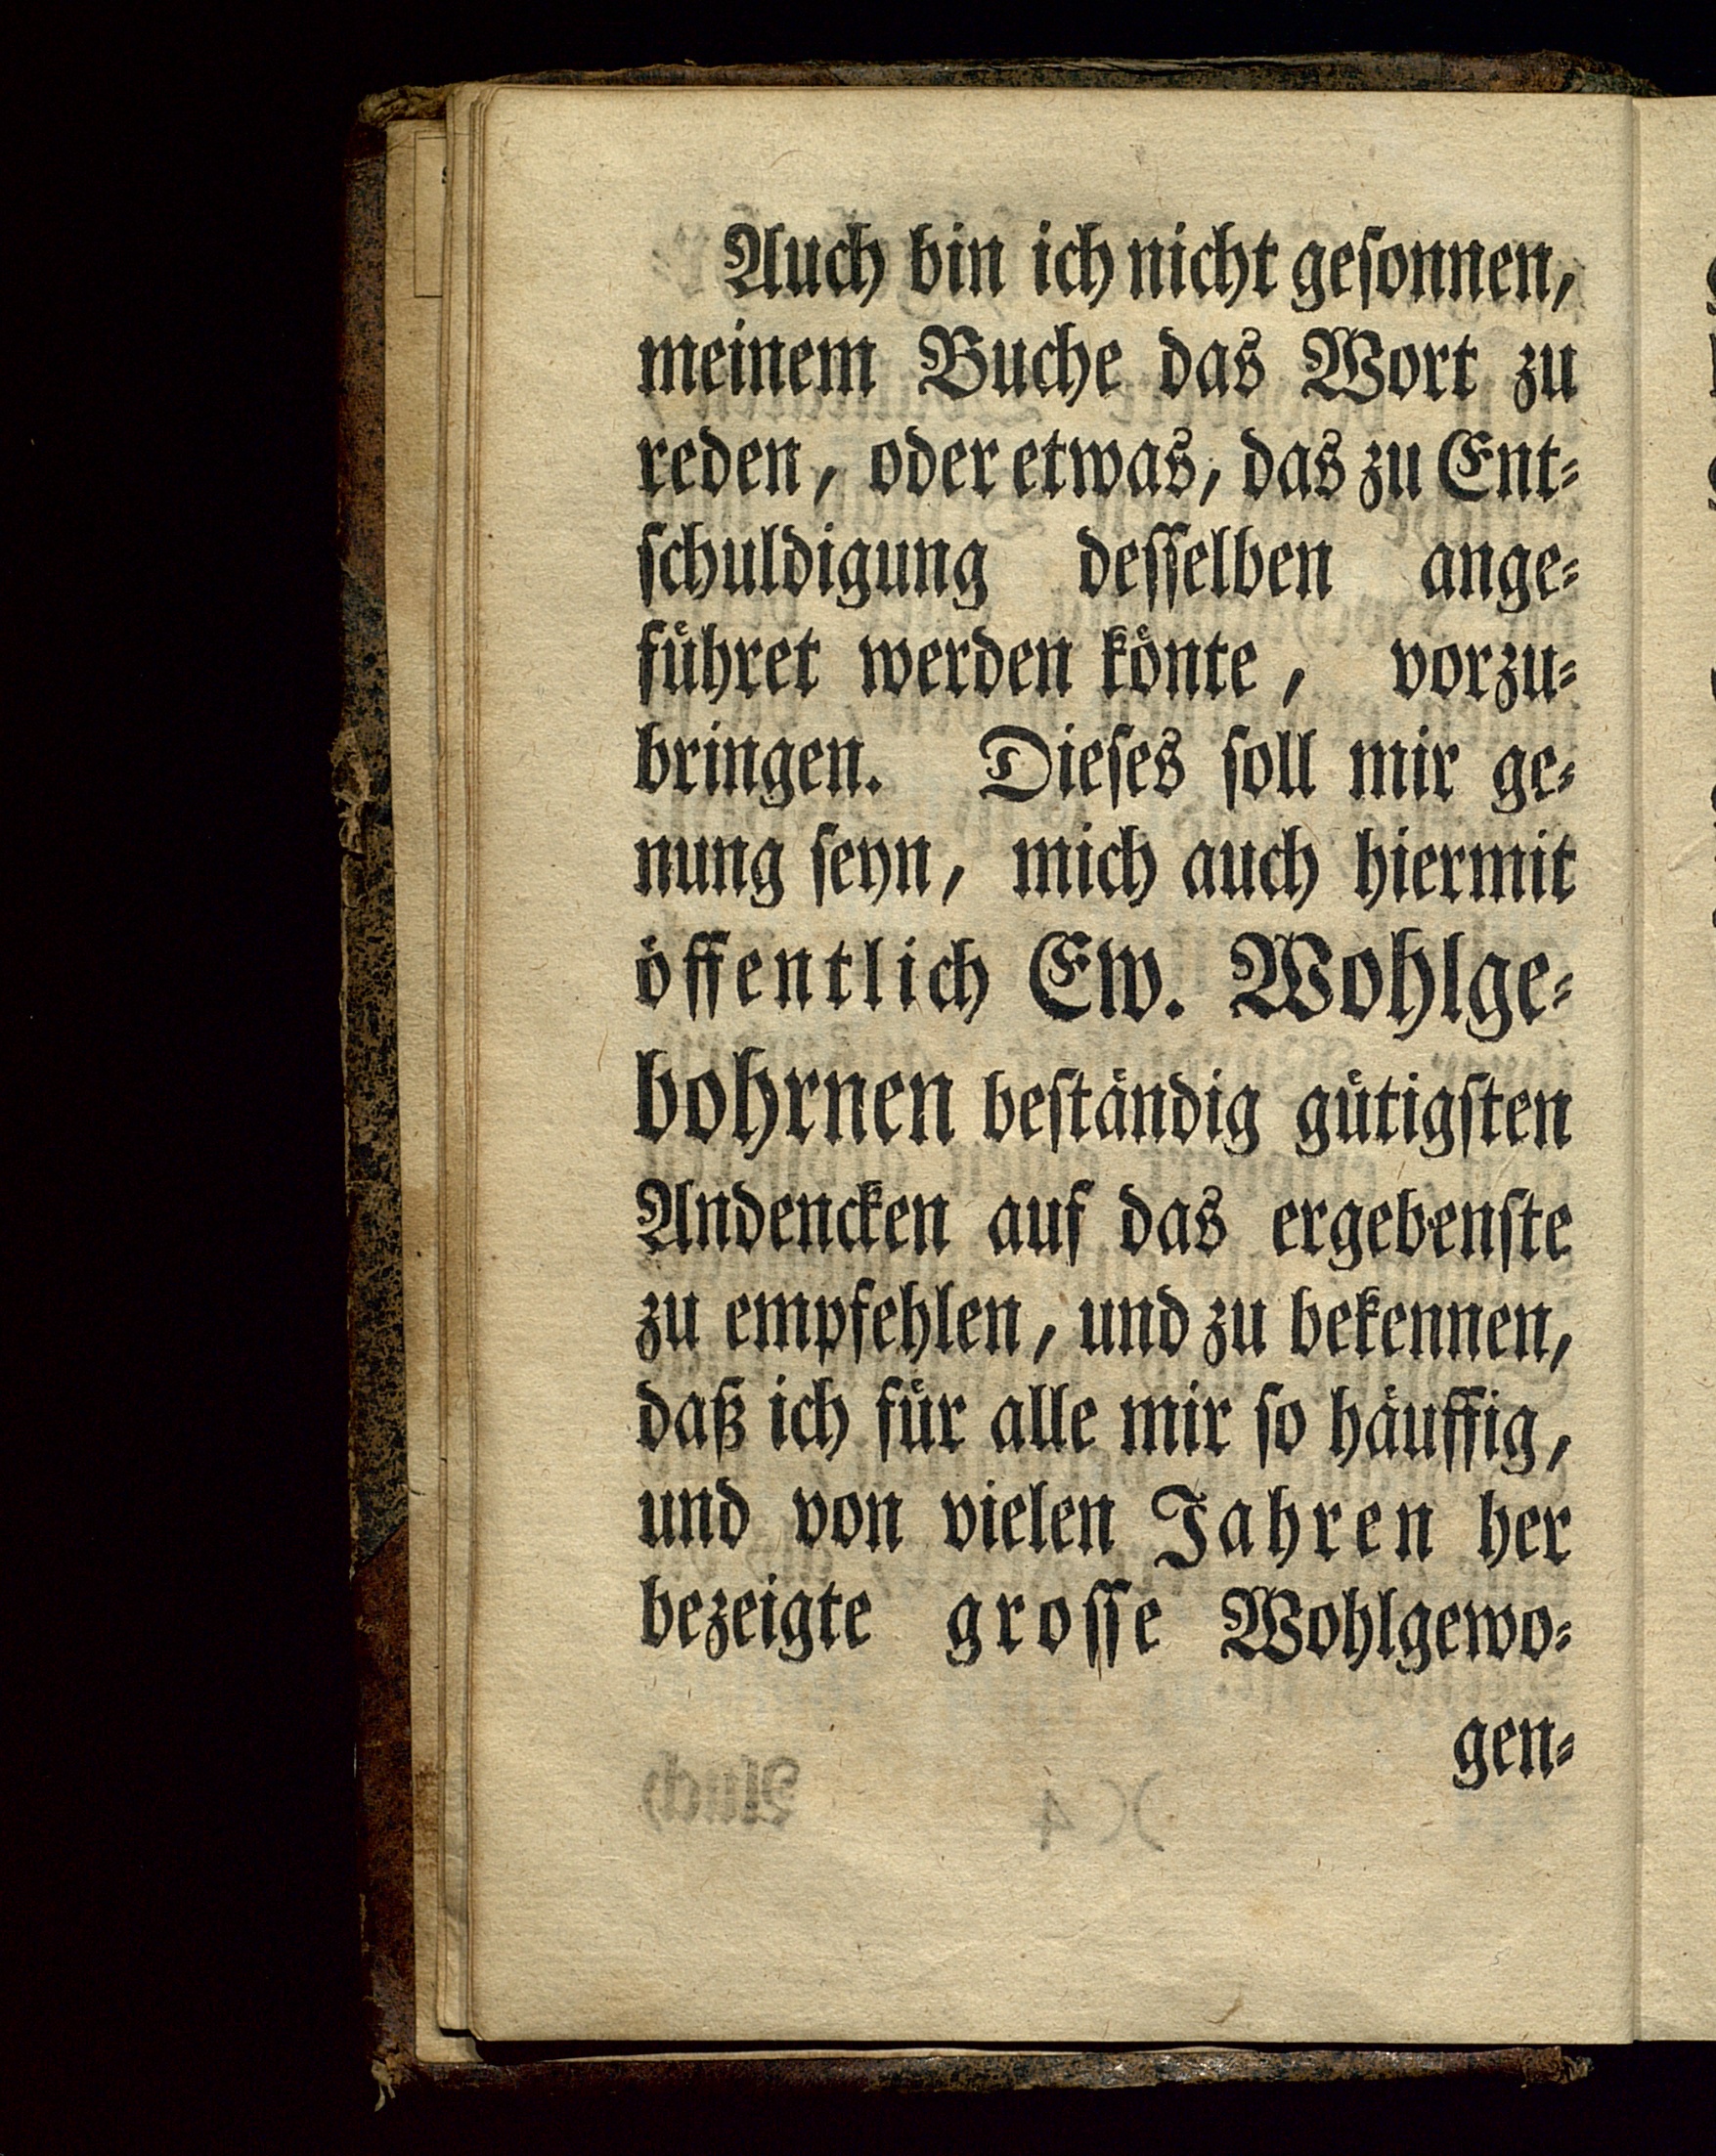 Auch bin ich nicht geſonnen,
meinem Buche das Wort zu
reden, oder etwas, das zu Ent⸗
ſchuldigung deſſelben ange⸗
fuͤhret werden koͤnte, vorzu⸗
bringen. Dieſes ſoll mir ge⸗
nung ſeyn, mich auch hiermit
oͤffentlich Ew. Wohlge⸗
bohrnen beſtaͤndig guͤtigſten
Andencken auf das ergebenſte
zu empfehlen, und zu bekennen,
daß ich fuͤr alle mir ſo haͤuffig,
und von vielen Jahren her
bezeigte groſſe Wohlgewo⸗
gen⸗